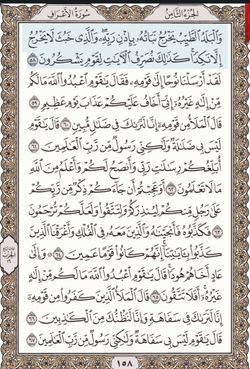 الجزء الثامن سورة الأعراف
وَٱلْبَلَدُ ٱلطَّيِّبُ يَخْرُجُ نَبَاتُهُۥ بِإِذْنِ رَبِّهِۦ وَٱلَّذِى خَبُثَ لَا يَخْرُجُ
إِلَّا نَكِدًا كَذَٰلِكَ نُصَرِّفُ ٱلْءَايَٰتِ لِقَوْمٍ يَشْكُرُونَ ٥٨
لَقَدْ أَرْسَلْنَا نُوحًا إِلَىٰ قَوْمِهِۦ فَقَالَ يَٰقَوْمِ ٱعْبُدُوا۟ ٱللَّهَ مَا لَكُم
مِّنْ إِلَٰهٍ غَيْرُهُۥٓ إِنِّىٓ أَخَافُ عَلَيْكُمْ عَذَابَ يَوْمٍ عَظِيمٍ ٥٩
قَالَ ٱلْمَلَأُ مِن قَوْمِهِۦٓ إِنَّا لَنَرَىٰكَ فِى ضَلَٰلٍ مُّبِينٍ ٦٠ قَالَ يَٰقَوْمِ
لَيْسَ بِى ضَلَٰلَةٌ وَلَٰكِنِّى رَسُولٌ مِّن رَّبِّ ٱلْعَٰلَمِينَ ٦١
أُبَلِّغُكُمْ رِسَٰلَٰتِ رَبِّى وَأَنصَحُ لَكُمْ وَأَعْلَمُ مِنَ ٱللَّهِ
مَا لَا تَعْلَمُونَ ٦٢ أَوَعَجِبْتُمْ أَن جَآءَكُمْ ذِكْرٌ مِّن رَّبِّكُمْ
عَلَىٰ رَجُلٍ مِّنكُمْ لِيُنذِرَكُمْ وَلِتَتَّقُوا۟ وَلَعَلَّكُمْ تُرْحَمُونَ
٦٣ فَكَذَّبُوهُ فَأَنجَيْنَٰهُ وَٱلَّذِينَ مَعَهُۥ فِى ٱلْفُلْكِ وَأَغْرَقْنَا ٱلَّذِينَ
كَذَّبُوا۟ بِـَٔايَٰتِنَآ إِنَّهُمْ كَانُوا۟ قَوْمًا عَمِينَ ٦٤ وَإِلَىٰ
عَادٍ أَخَاهُمْ هُودًا قَالَ يَٰقَوْمِ ٱعْبُدُوا۟ ٱللَّهَ مَا لَكُم مِّنْ إِلَٰهٍ
غَيْرُهُۥٓ أَفَلَا تَتَّقُونَ ٦٥ قَالَ ٱلْمَلَأُ ٱلَّذِينَ كَفَرُوا۟ مِن قَوْمِهِۦٓ
إِنَّا لَنَرَىٰكَ فِى سَفَاهَةٍ وَإِنَّا لَنَظُنُّكَ مِنَ ٱلْكَٰذِبِينَ ٦٦
قَالَ يَٰقَوْمِ لَيْسَ بِى سَفَاهَةٌ وَلَٰكِنِّى رَسُولٌ مِّن رَّبِّ ٱلْعَٰلَمِينَ ٦٧
١٥٨